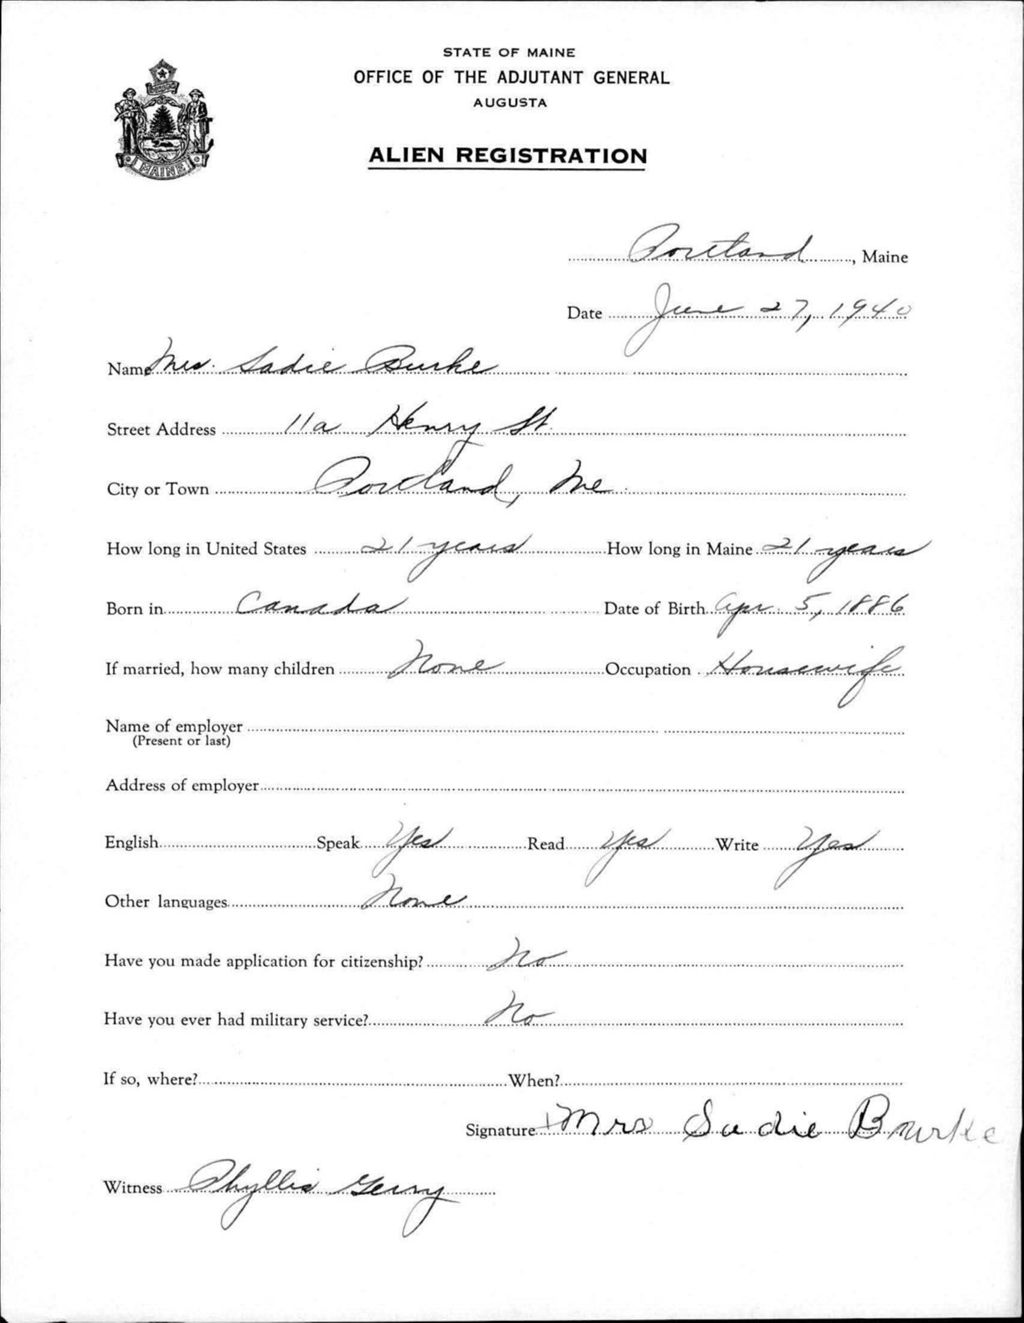 STATE OF MAINE
OFFICE OF THE ADJUTANT GENERAL
AUGUSTA
ALIEN REGISTRATION
MAINE
Portland, Maine
Date June 27, 1940
Name Mrs. Sadie Burke
Street Address 11a Henry St.
City or Town Portland, Me.
How long in United States 21 years How long in Maine 21 years
Born in Canada Date of Birth Apr. 5, 1886
If married, how many children None Occupation Housewife
Name of employer
(Present or last)
Address of employer
English Speak Yes Read Yes Write Yes
Other languages None
Have you made application for citizenship? No
Have you ever had military service? No
If so, where? When?
Signature Mrs Sadie Burke
Witness Phyllis Gerry